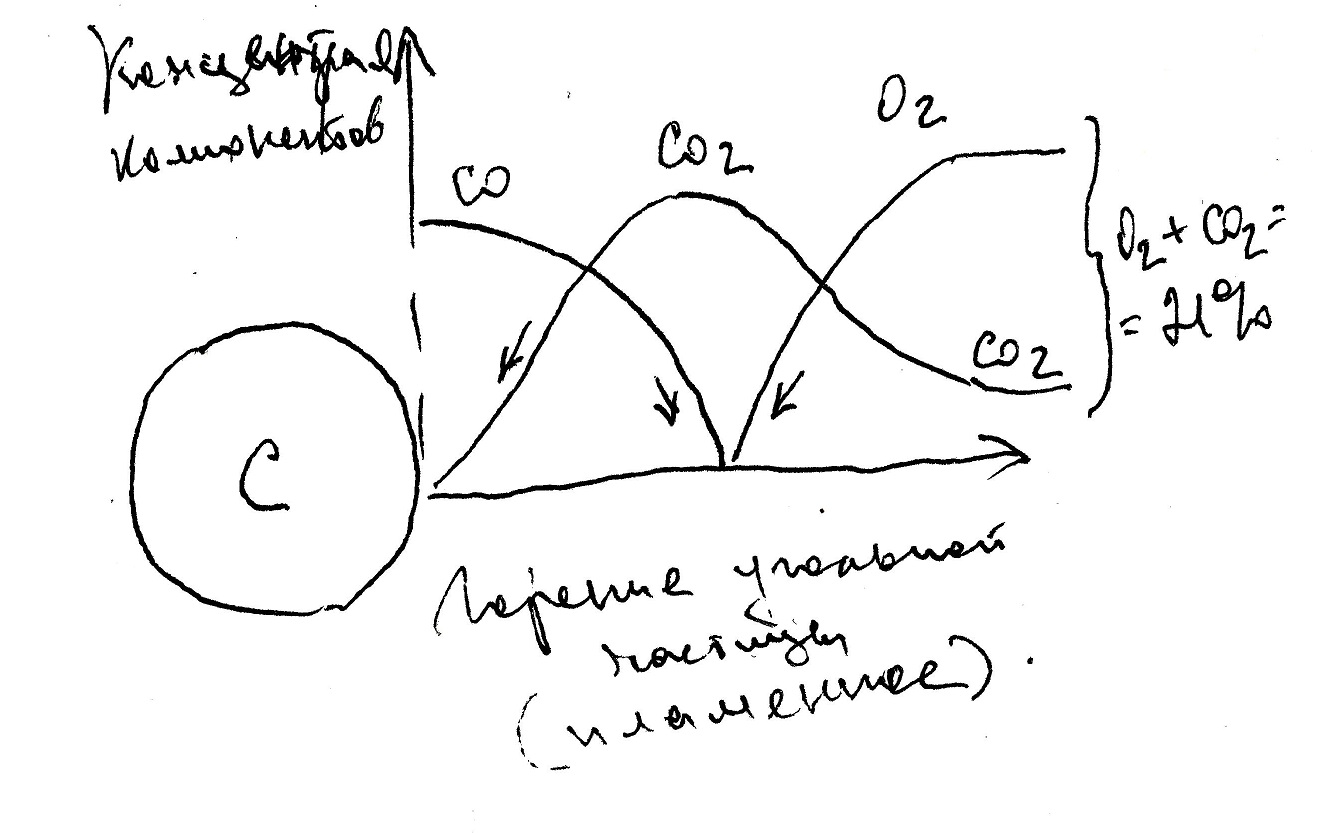 Концентрация
компонентов
CO
CO2
O2
O2 + CO2 =
= 21%
CO2
C
Горение угольной
частицы
(пламенное).